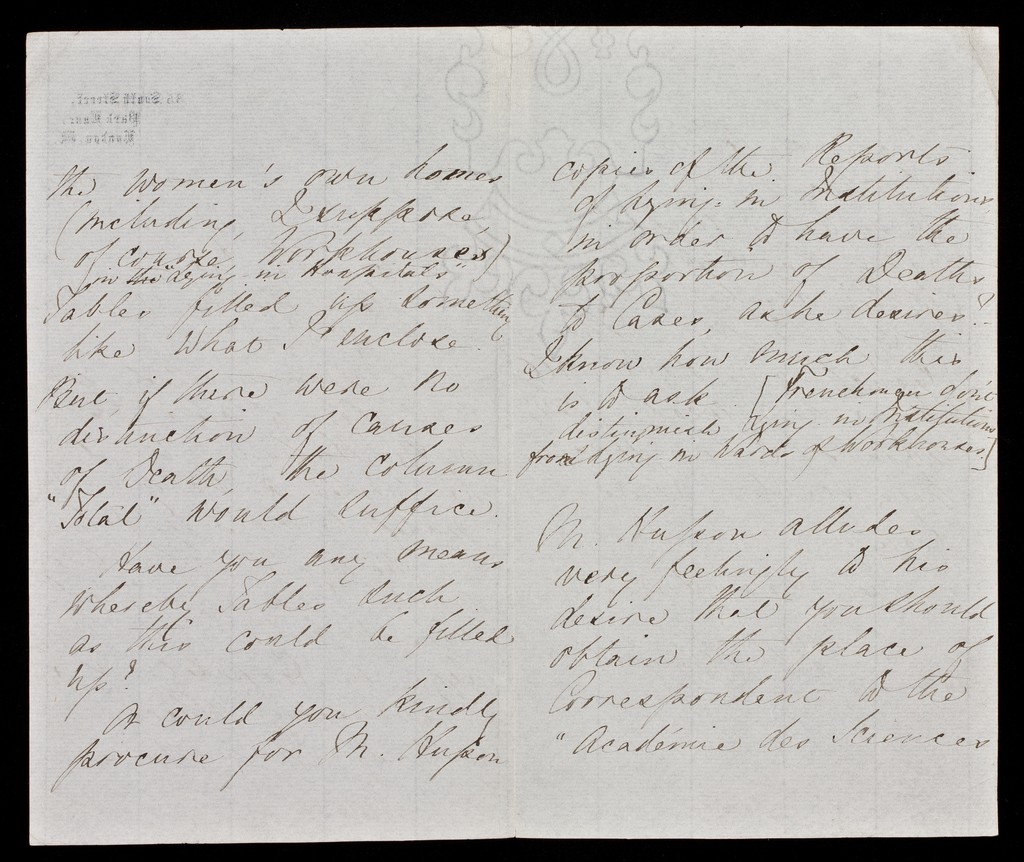 35 South Street,
Park Lane,
London. W.
the women's own homes
(including, I suppose,
of course, Workhouses)
on the "Lying in Hospitals"
Tables filled up something
like what I enclose.
But, if there were no
distinction of Causes
of Death, the column
"Total" would suffice.
Have you any means
whereby Tables such
as this could be filled
up?
Or could you kindly
procure for M. Husson
copies of the Reports
of Lying-in Institutions,
in order to have the
proportion of Deaths
to Cases, as he desires?
I know how much this
is to ask. [Frenchmen don't
distinguish Lying in Institutions
from lying in Wards of Workhouses.]
M. Husson alludes
very feelingly to his
desire that you should
obtain the place of
Correspondent to the
"Académie des Sciences